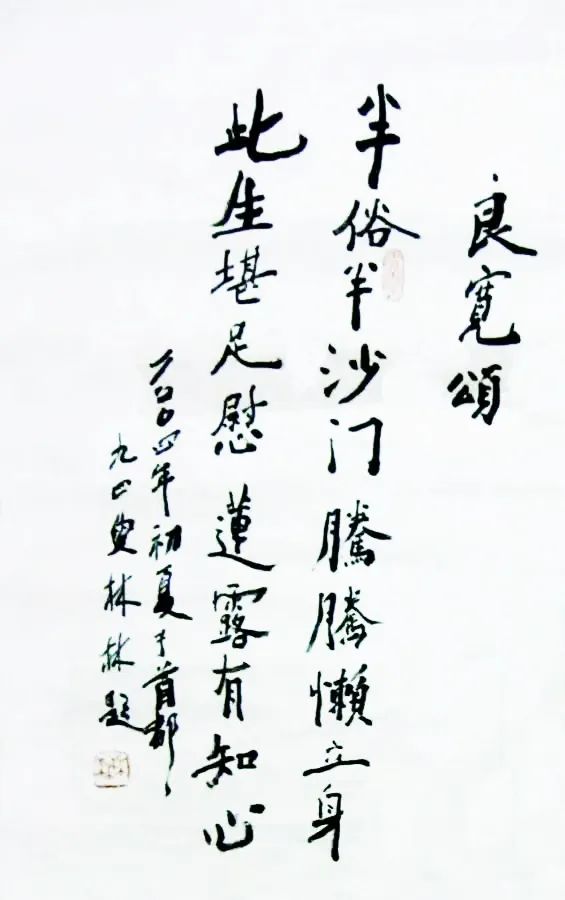 良寬頌
半俗半沙门騰騰懶立身
此生堪足慰蓮露有知心
二〇〇四年初夏于首都
九四叟林林題